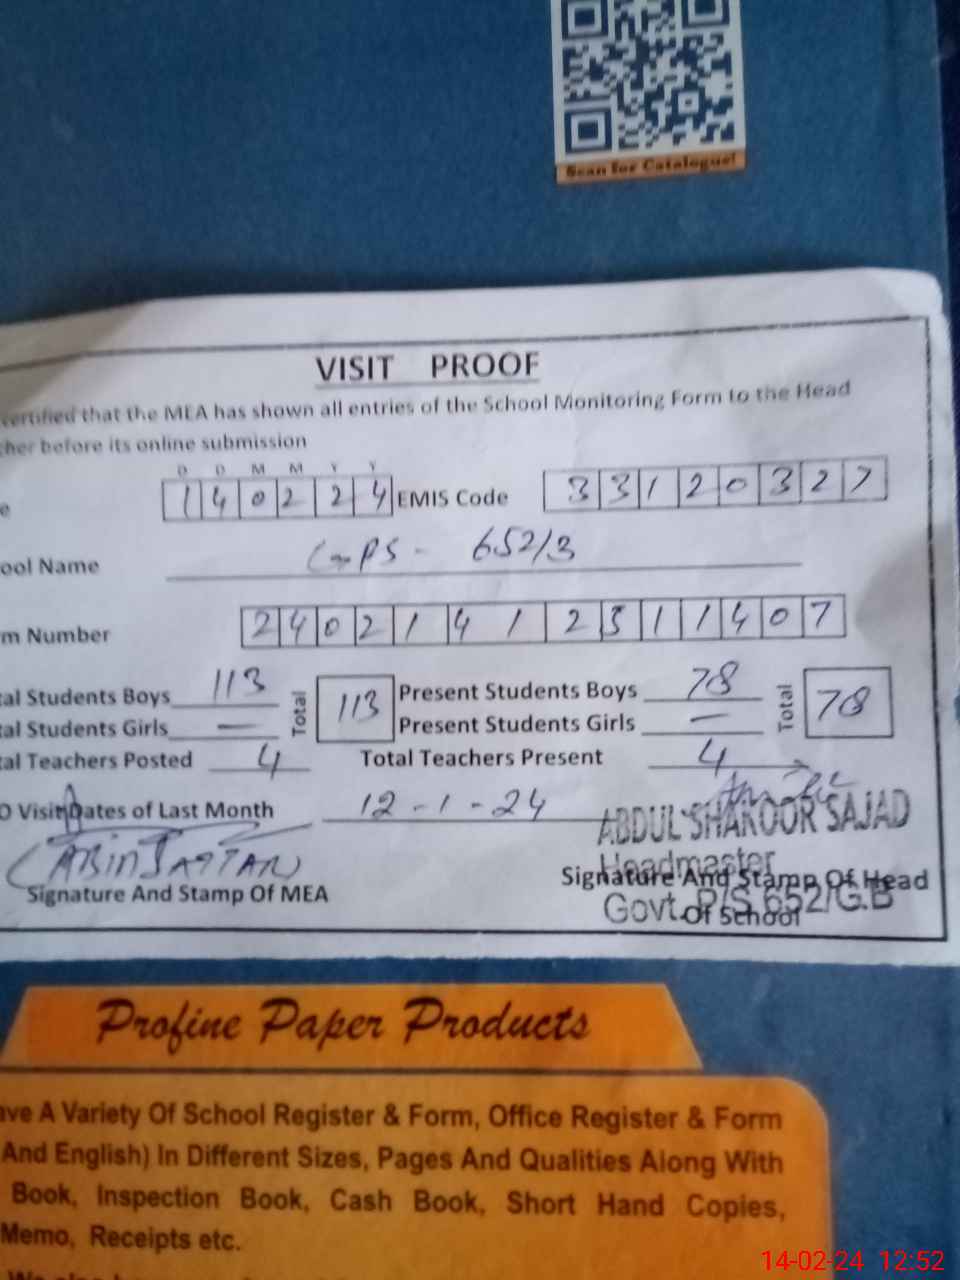 Scan for Catalogue!
VISIT PROOF
certified that the MEA has shown all entries of the School Monitoring Form to the Head
cher before its online submission
D D M M Y Y
e 1 4 0 2 2 4 EMIS Code 3 3 1 2 0 3 2 7
ool Name GPS - 652/3
m Number 2 4 0 2 1 4 1 2 3 1 1 4 0 7
al Students Boys 113 Total 113 Present Students Boys 78 Total 78
al Students Girls — Present Students Girls —
al Teachers Posted 4 Total Teachers Present 4
O Visit Dates of Last Month 12-1-24
ABDUL SHAKOOR SAJAD
Headmaster
Signature And Stamp Of MEA Signature And Stamp Of Head
Govt. P/S 652/G.B
Of School
Profine Paper Products
ave A Variety Of School Register & Form, Office Register & Form
And English) In Different Sizes, Pages And Qualities Along With
Book, Inspection Book, Cash Book, Short Hand Copies,
Memo, Receipts etc.
14-02-24 12:52